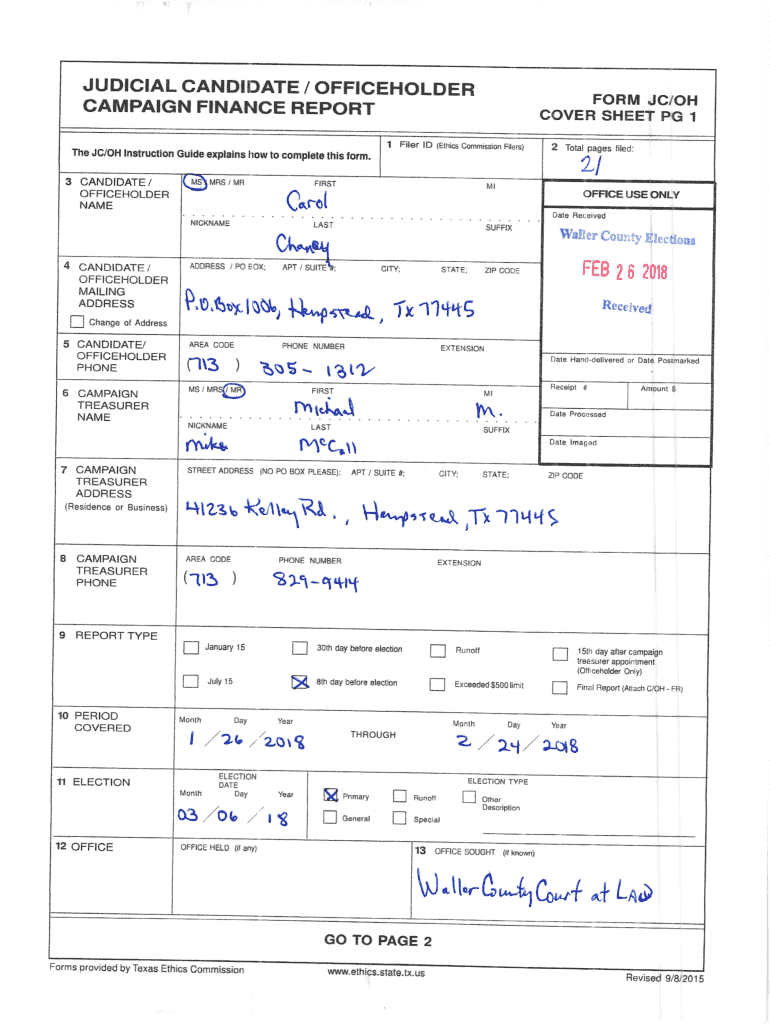 JUDICIAL CANDIDATE / OFFICEHOLDER
CAMPAIGN FINANCE REPORT
FORM JC/OH
COVER SHEET PG 1
The JC/OH Instruction Guide explains how to complete this form.
1 Filer ID (Ethics Commission Filers)
2 Total pages filed:
21
3 CANDIDATE / OFFICEHOLDER NAME
MS / MRS / MR FIRST MI
Carol
NICKNAME LAST SUFFIX
Chaney
OFFICE USE ONLY
Date Received
Waller County Elections
FEB 26 2018
Received
4 CANDIDATE / OFFICEHOLDER MAILING ADDRESS
Change of Address
ADDRESS / PO BOX; APT / SUITE #; CITY; STATE; ZIP CODE
P.O. Box 1006, Hempstead, Tx 77445
5 CANDIDATE/ OFFICEHOLDER PHONE
AREA CODE PHONE NUMBER EXTENSION
(713) 305-1312
Date Hand-delivered or Date Postmarked
6 CAMPAIGN TREASURER NAME
MS / MRS / MR FIRST MI
Michael M.
NICKNAME LAST SUFFIX
Mike McCall
Receipt # Amount $
Date Processed
Date Imaged
7 CAMPAIGN TREASURER ADDRESS
(Residence or Business)
STREET ADDRESS (NO PO BOX PLEASE); APT / SUITE #; CITY; STATE; ZIP CODE
41236 Kelley Rd., Hempstead, Tx 77445
8 CAMPAIGN TREASURER PHONE
AREA CODE PHONE NUMBER EXTENSION
(713) 829-9414
9 REPORT TYPE
January 15 30th day before election Runoff 15th day after campaign treasurer appointment (Officeholder Only)
July 15 8th day before election Exceeded $500 limit Final Report (Attach C/OH - FR)
10 PERIOD COVERED
Month Day Year Month Day Year
1 / 26 / 2018 THROUGH 2 / 24 / 2018
11 ELECTION
ELECTION DATE ELECTION TYPE
Month Day Year
03 / 06 / 18
Primary Runoff Other Description
General Special
12 OFFICE
OFFICE HELD (if any)
13 OFFICE SOUGHT (if known)
Waller County Court at Law
GO TO PAGE 2
Forms provided by Texas Ethics Commission www.ethics.state.tx.us Revised 9/8/2015